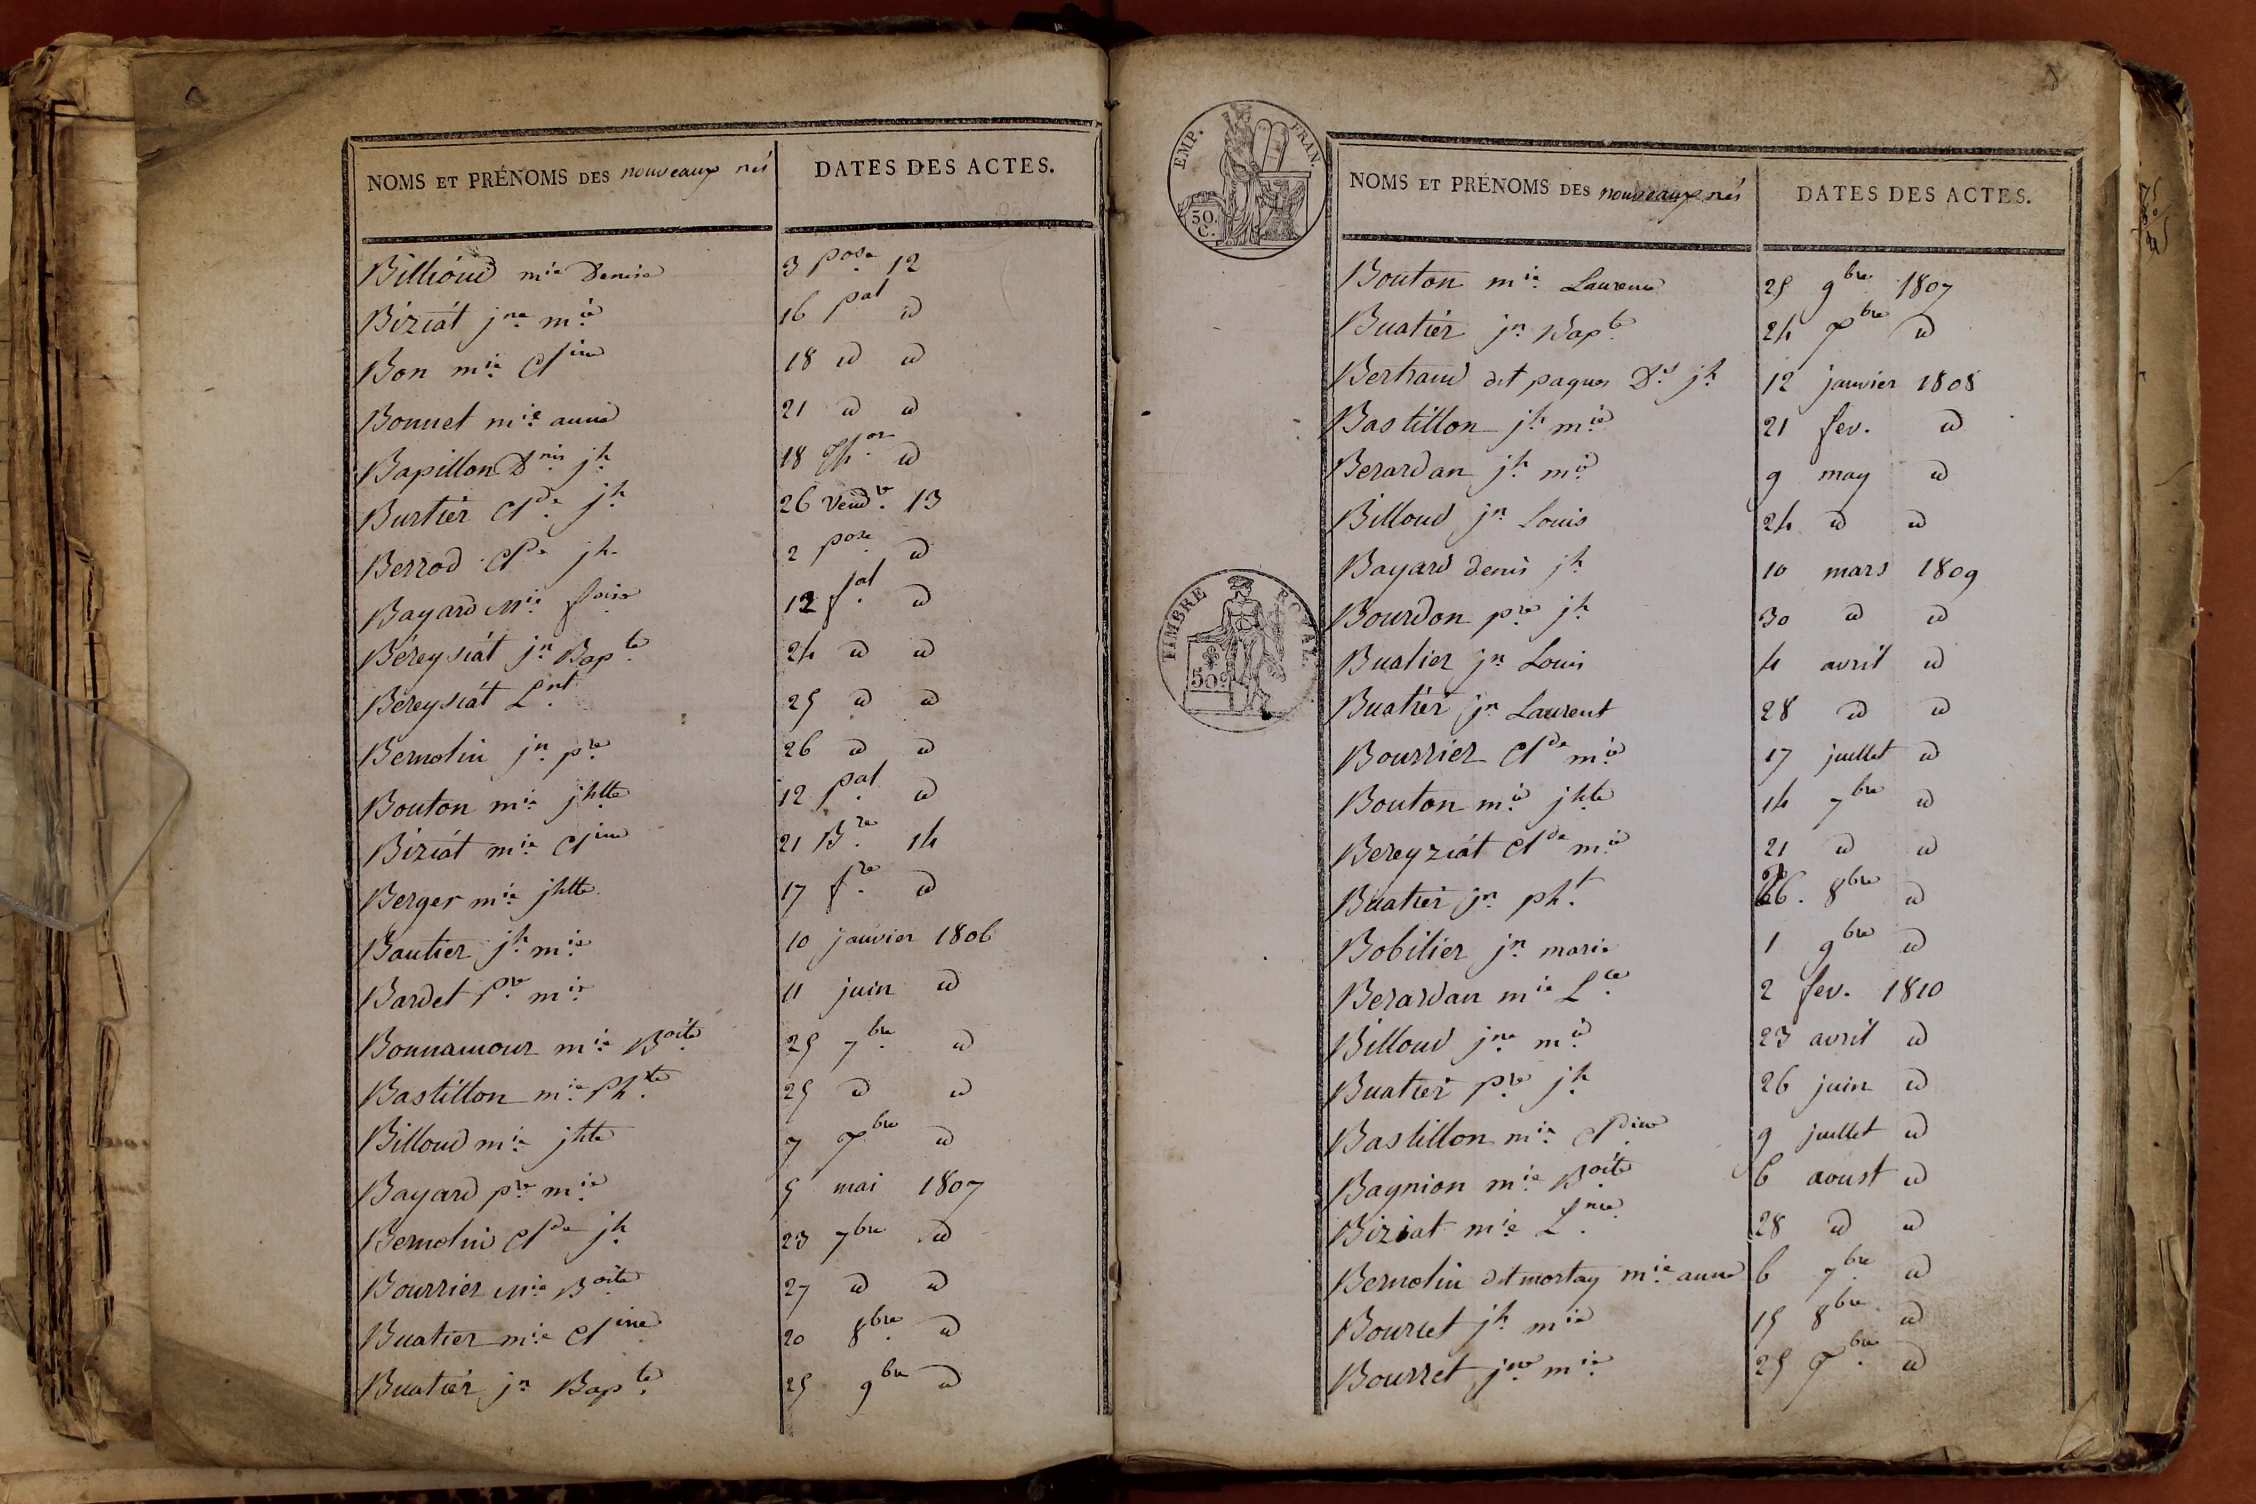 NOMS ET PRÉNOMS DES nouveaux nés DATES DES ACTES.
Billioud mie Denise 3 pose 12
Biziat jne mie 16 pal d
Bon mie Cline 18 d d
Bonnet mie anne 21 d d
Bapillon Dnis jh 18 thor d
Burtier Clde jh 26 Vendre 13
Berrod Clde jh 2 pose d
Bayard Mie 12 fal d
Béreysiat jn Bapte 24 d d
Béreysiat Lnt 25 d d
Bernolin jn pre 26 d d
Bouton mie jhtte 12 pal d
Biziat mie Cline 21 Bre 14
Berger mie jhtte 17 fre d
Bautier jh mie 10 janvier 1806
Bardet pre mie 11 juin d
Bonnamour mie Boite 25 7bre d
Bastillon mie Phte 25 d d
Billoud mie jhte 7 Xbre d
Bayard pre mie 5 mai 1807
Bernolin Clde jh 23 7bre d
Bourrier Mie Boite 27 d d
Buatier mie Cline 20 8bre d
Buatier jn Bapte 25 9bre d
EMP. FRAN.
50. C.
TIMBRE ROYAL
50c
NOMS ET PRÉNOMS DES nouveaux nés DATES DES ACTES.
Bouton mie Laurence 25 9bre 1807
Buatier jn Bapte 24 Xbre d
Bertrand dit paques Dis jh 12 janvier 1808
Bastillon jh mie 21 fev. d
Berardan jh mie 9 may d
Billoud jn Louis 24 d d
Bayard denis jh 10 mars 1809
Bourdon pre jh 30 d d
Buatier jn Louis 4 avril d
Buatier jn Laurent 28 d d
Bourrier Clde mie 17 juillet d
Bouton mie jhte 14 7bre d
Bereyziat Clde mie 21 d d
Buatier jn pht 26. 8bre d
Bobilier jn marie 1 9bre d
Berardan mie Lce 2 fev. 1810
Billoud jne mie 23 avril d
Buatier pre jh 26 juin d
Bastillon mie Cldine 9 juillet d
Bagnion mie Boite 6 aoust d
Biziat mie Lnce 28 d d
Bernolin dit mortay mie anne 6 7bre d
Bourret jh mie 15 8bre d
Bourret jne mie 25 Xbre d